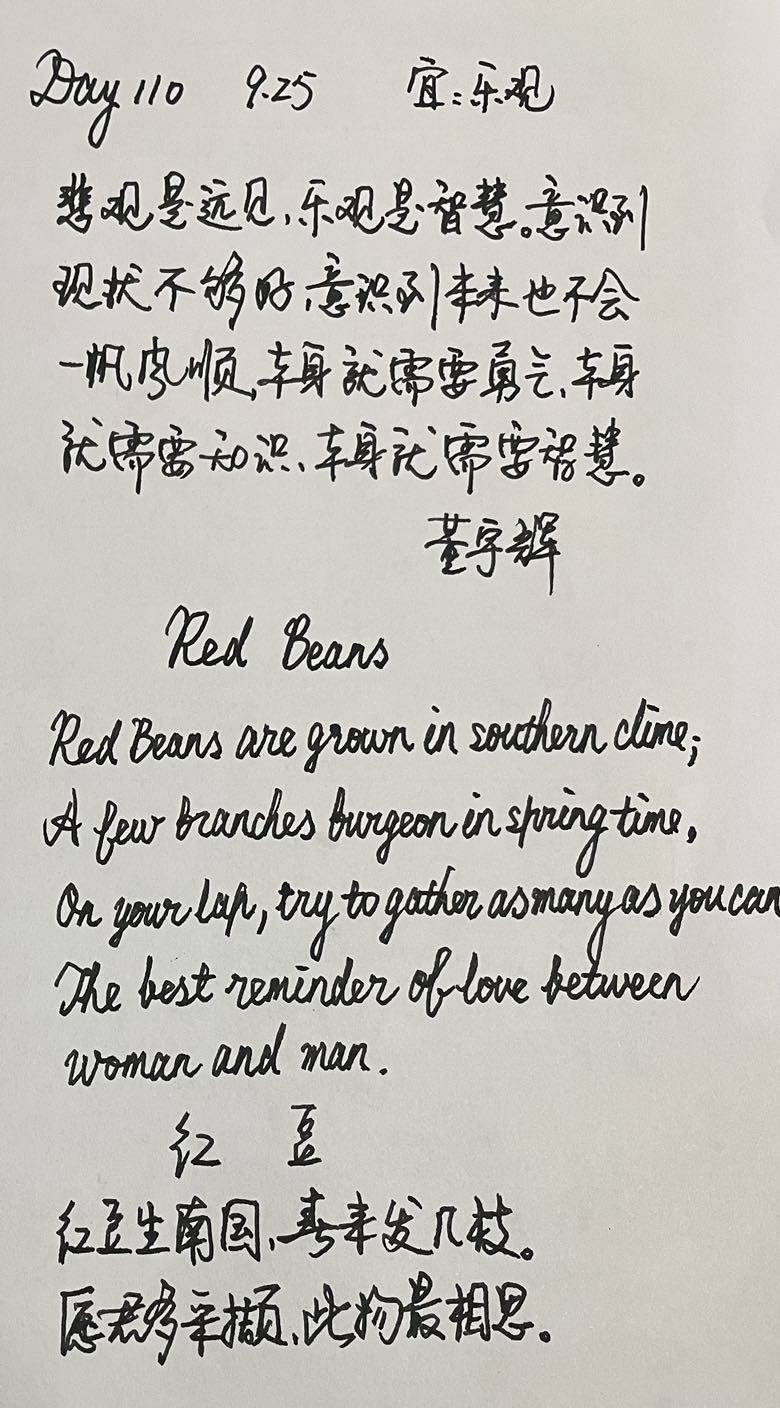 Day 110 9.25 宜:乐观
悲观是远见,乐观是智慧。意识到
现状不够好,意识到未来也不会
一帆风顺,本身就需要勇气,本身
就需要知识、本身就需要智慧。
董宇辉
Red Beans
Red Beans are grown in southern clime;
A few branches burgeon in spring time,
On your lap, try to gather as many as you can
The best reminder of love between
woman and man.
红豆
红豆生南国,春来发几枝。
愿君多采撷,此物最相思。